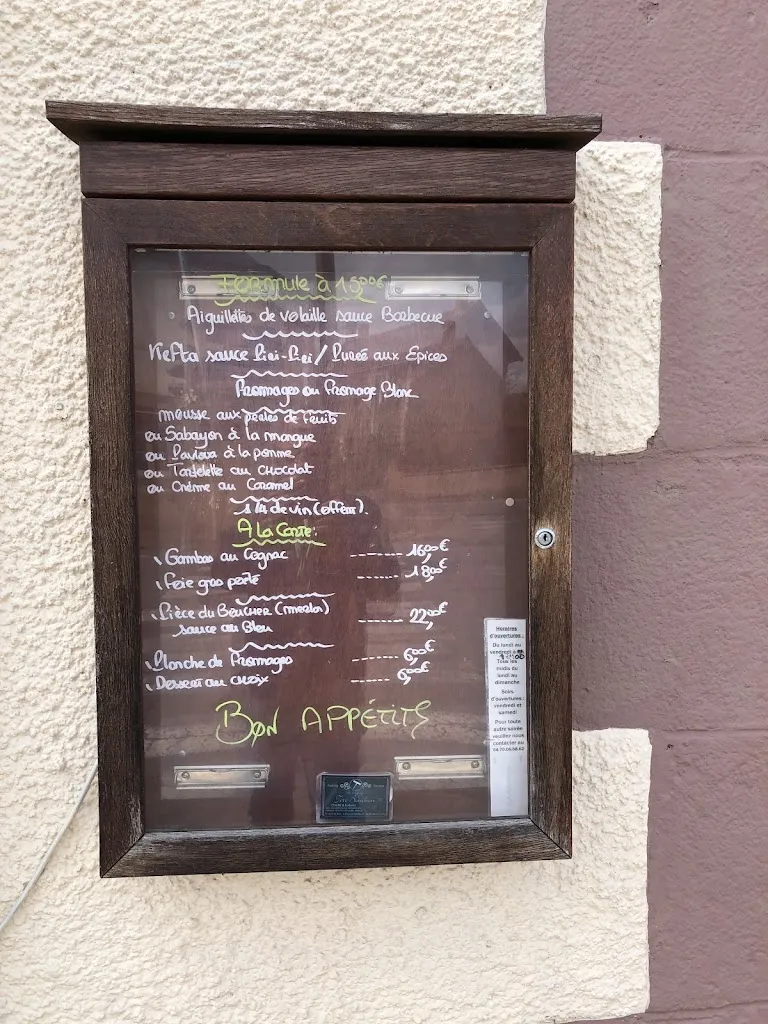 Formule à 15,00€
Aiguillettes de volaille sauce Barbecue
Kefta sauce Piri-Piri / Purée aux Epices
Fromages ou Fromage Blanc
mousse aux perles de fruits
ou Sabayon à la mangue
ou Pavlova à la pomme
ou Tartelette au chocolat
ou Crème au Caramel
1/4 de vin (offert).
A la Carte:
Gambas au Cognac ------- 16,00€
Foie gras poêlé ------ 18,00€
Pièce du Boucher (merlan) ------ 22,00€
sauce au Bleu
Planche de Fromages ------ 6,00€
Dessert au choix ------ 6,00€
BON APPÉTITS
Horaires
d'ouvertures..
Du lundi au
vendredi
Tous les
midis du
lundi au
dimanche
Soirs
d'ouvertures:
vendredi et
samedi
Pour toute
autre soirée
veuillez nous
contacter au